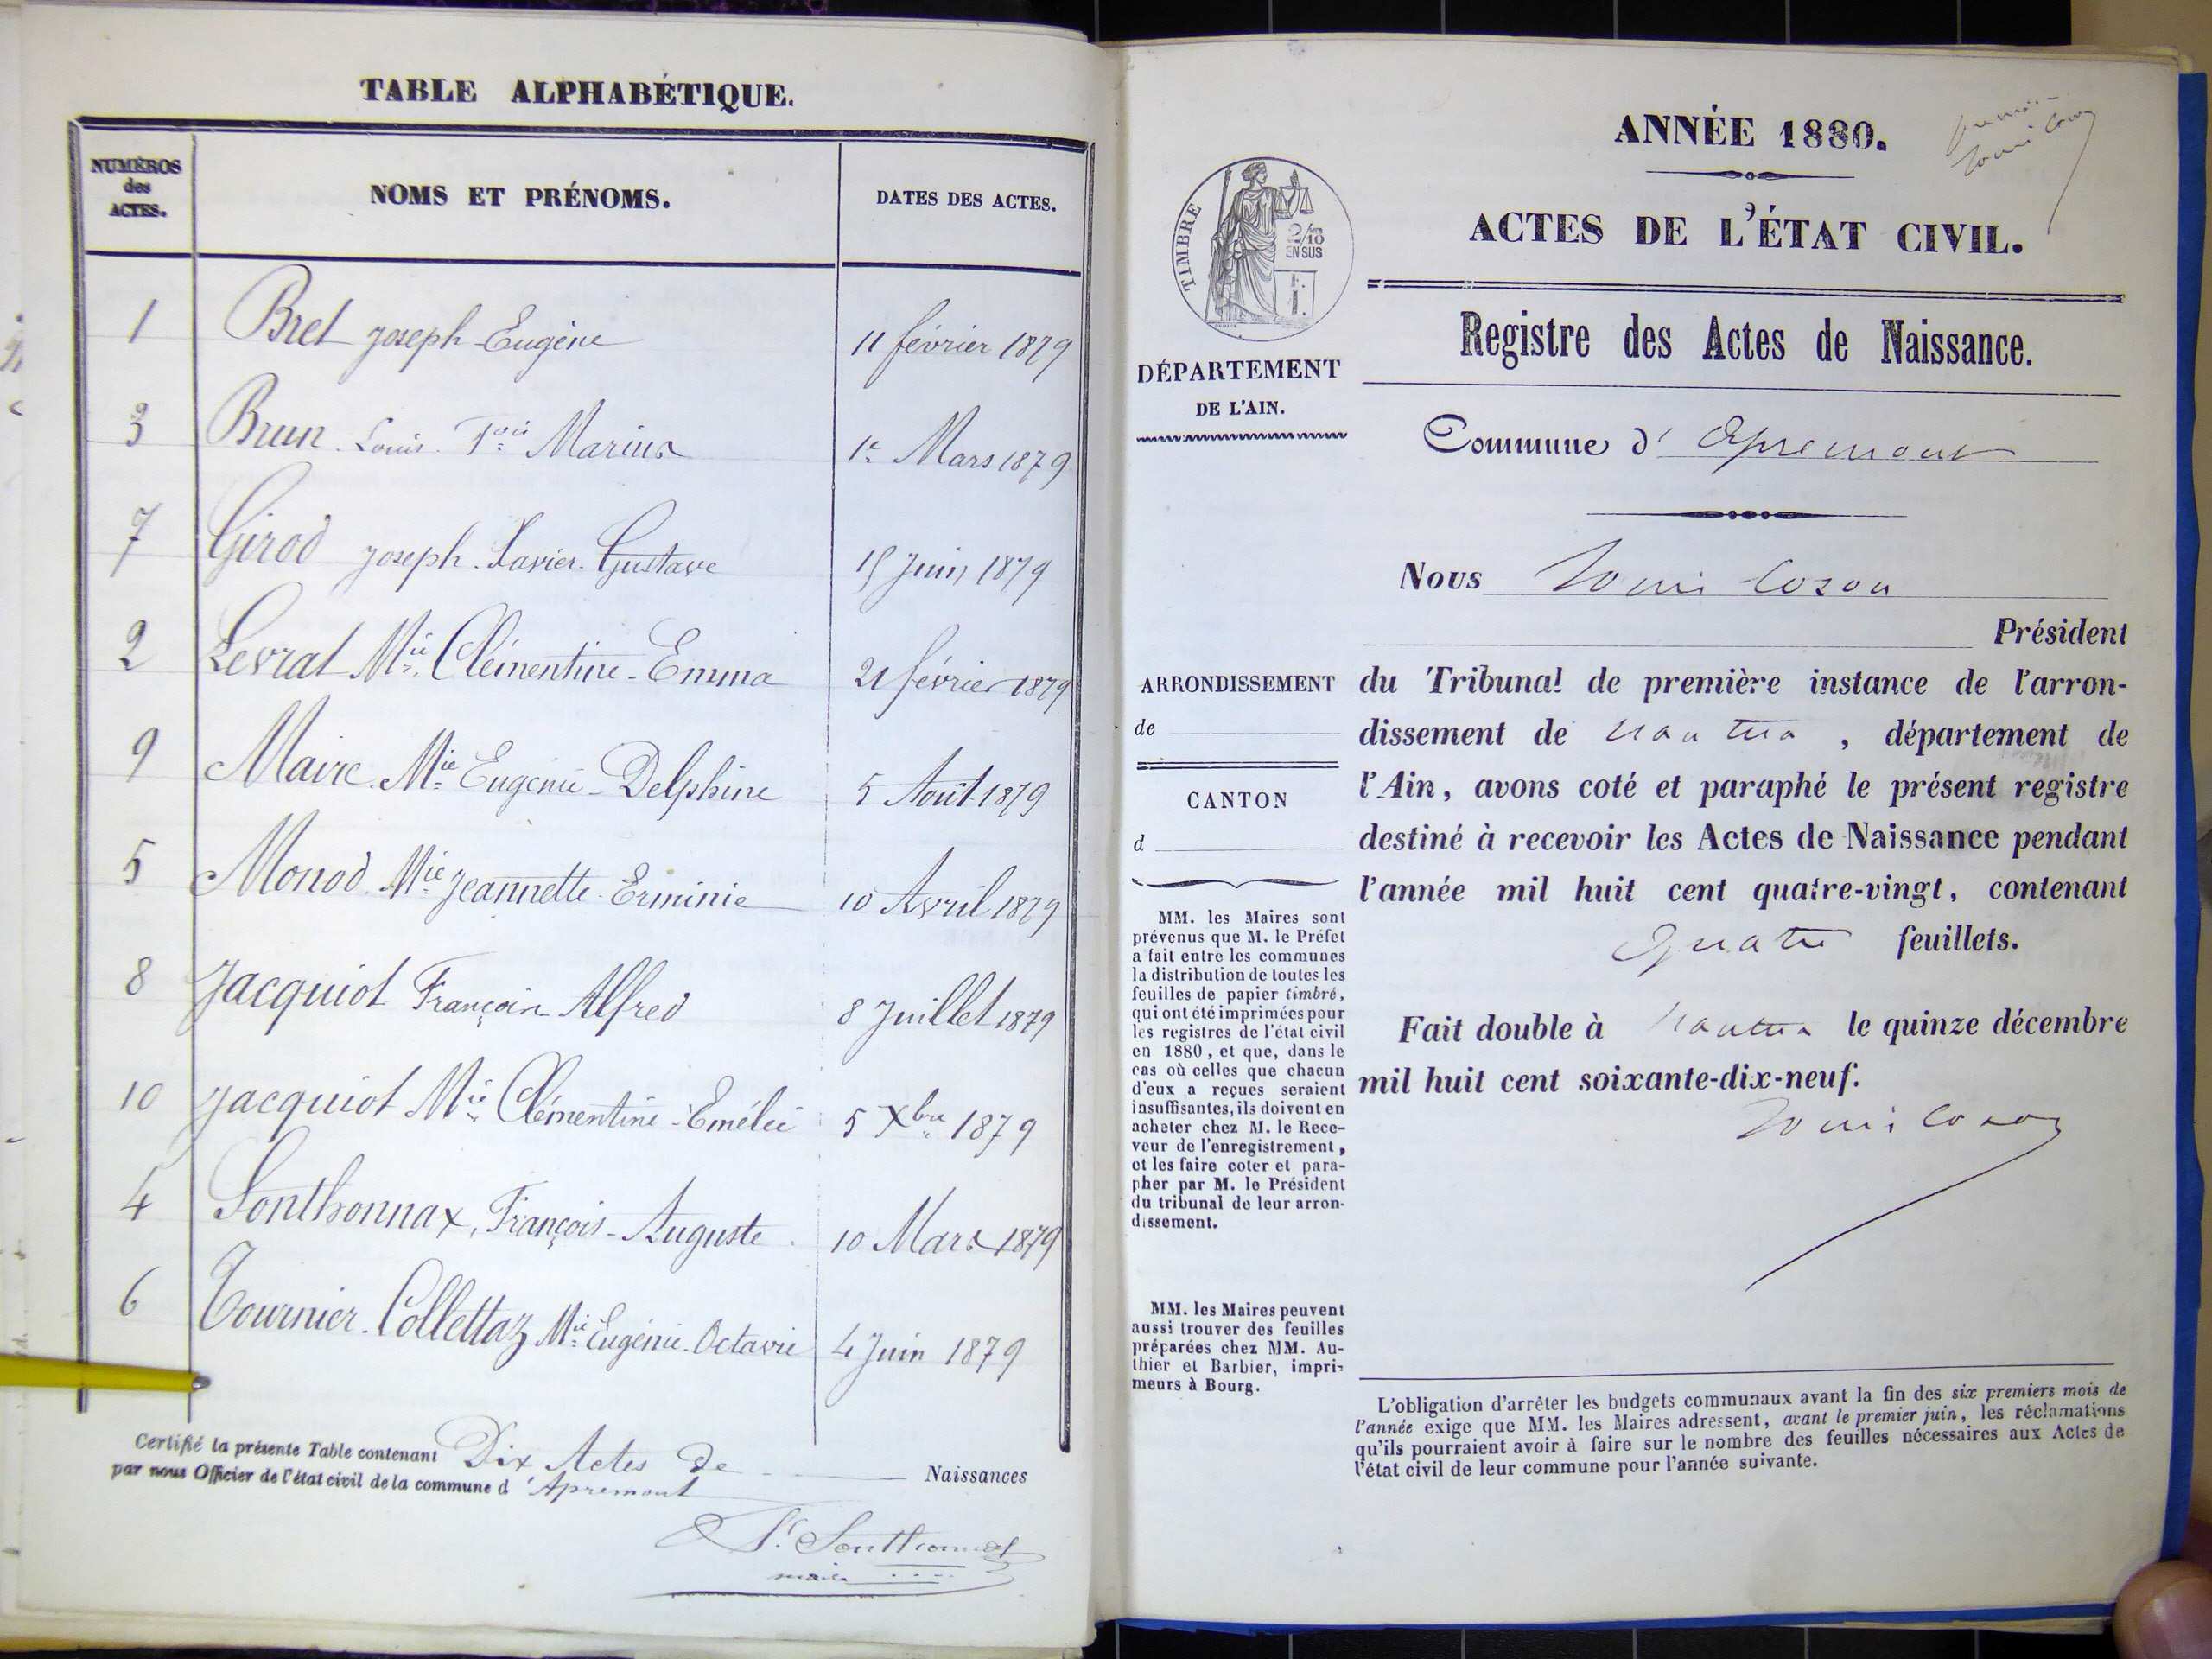 TABLE ALPHABÉTIQUE.
NUMÉROS des ACTES.
NOMS ET PRÉNOMS.
DATES DES ACTES.
1 Bret Joseph Eugène 11 février 1879
3 Brun Louis Fois Marius 1er Mars 1879
7 Girod Joseph Xavier Gustave 15 Juin 1879
2 Levrat Mie Clémentine Emma 21 février 1879
9 Maire Mie Eugénie Delphine 5 Août 1879
5 Monod Mie Jeannette Erminie 10 Avril 1879
8 Jacquiot François Alfred 8 Juillet 1879
10 Jacquiot Mie Clémentine Emélie 5 Xbre 1879
4 Sonthonnax, François Auguste 10 Mars 1879
6 Tournier Collettaz Mie Eugénie Octavie 4 Juin 1879
Certifié la présente Table contenant Dix Actes de Naissances
par nous Officier de l'état civil de la commune d'Apremont
Sonthonnax
maire
ANNÉE 1880.
premier
ACTES DE L'ÉTAT CIVIL.
TIMBRE
2/10 EN SUS
Registre des Actes de Naissance.
DÉPARTEMENT
DE L'AIN.
Commune d' Apremont
Nous
Président
ARRONDISSEMENT
de
CANTON
d
du Tribunal de première instance de l'arron-
dissement de Nantua, département de
l'Ain, avons coté et paraphé le présent registre
destiné à recevoir les Actes de Naissance pendant
l'année mil huit cent quatre-vingt, contenant
Quatre feuillets.
Fait double à Nantua le quinze décembre
mil huit cent soixante-dix-neuf.
MM. les Maires sont
prévenus que M. le Préfet
a fait entre les communes
la distribution de toutes les
feuilles de papier timbré,
qui ont été imprimées pour
les registres de l'état civil
en 1880, et que, dans le
cas où celles que chacun
d'eux a reçues seraient
insuffisantes, ils doivent en
acheter chez M. le Rece-
veur de l'enregistrement,
et les faire coter et para-
pher par M. le Président
du tribunal de leur arron-
dissement.
MM. les Maires peuvent
aussi trouver des feuilles
préparées chez MM. Au-
thier et Barbier, impri-
meurs à Bourg.
L'obligation d'arrêter les budgets communaux avant la fin des six premiers mois de
l'année exige que MM. les Maires adressent, avant le premier juin, les réclamations
qu'ils pourraient avoir à faire sur le nombre des feuilles nécessaires aux Actes de
l'état civil de leur commune pour l'année suivante.